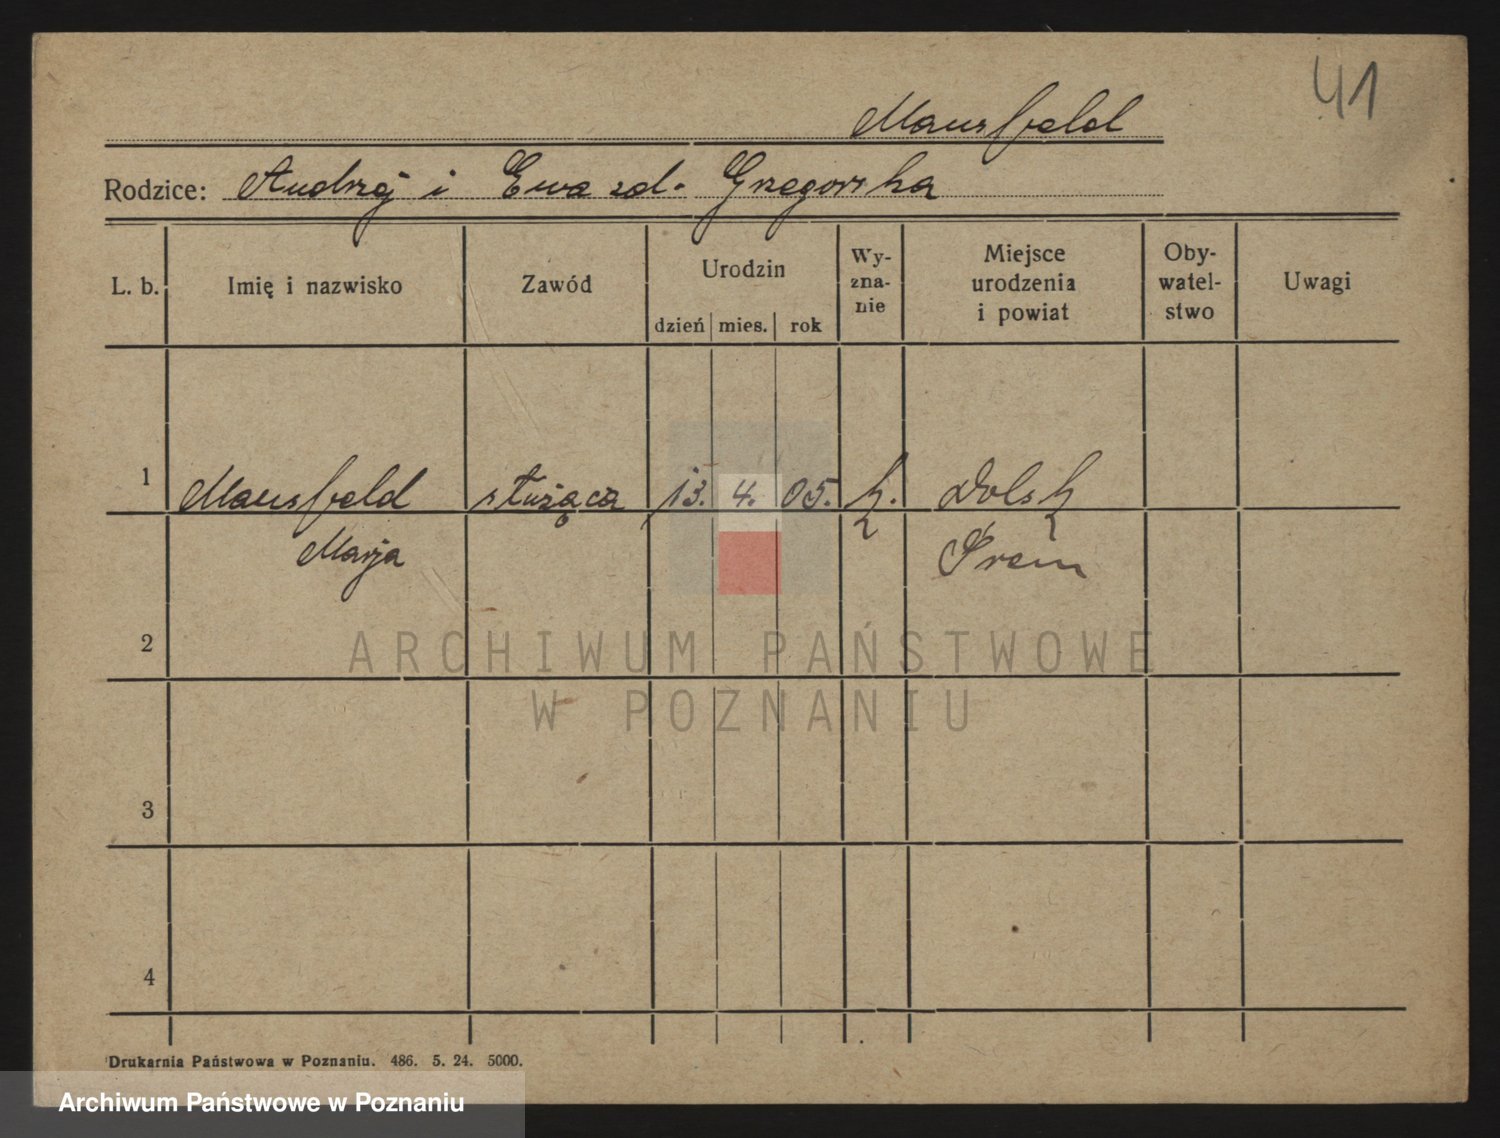 41
Mansfeld
Rodzice: Andrzej i Ewa zd. Grzegorska
L. b.
Imię i nazwisko
Zawód
Urodzin
dzień mies. rok
Wy-
zna-
nie
Miejsce
urodzenia
i powiat
Oby-
watel-
stwo
Uwagi
1 Mansfeld służąca 13. 4. 05. k. Dolsk
Marja Śrem
2
3
4
ARCHIWUM PAŃSTWOWE
W POZNANIU
Drukarnia Państwowa w Poznaniu. 486. 5. 24. 5000.
Archiwum Państwowe w Poznaniu